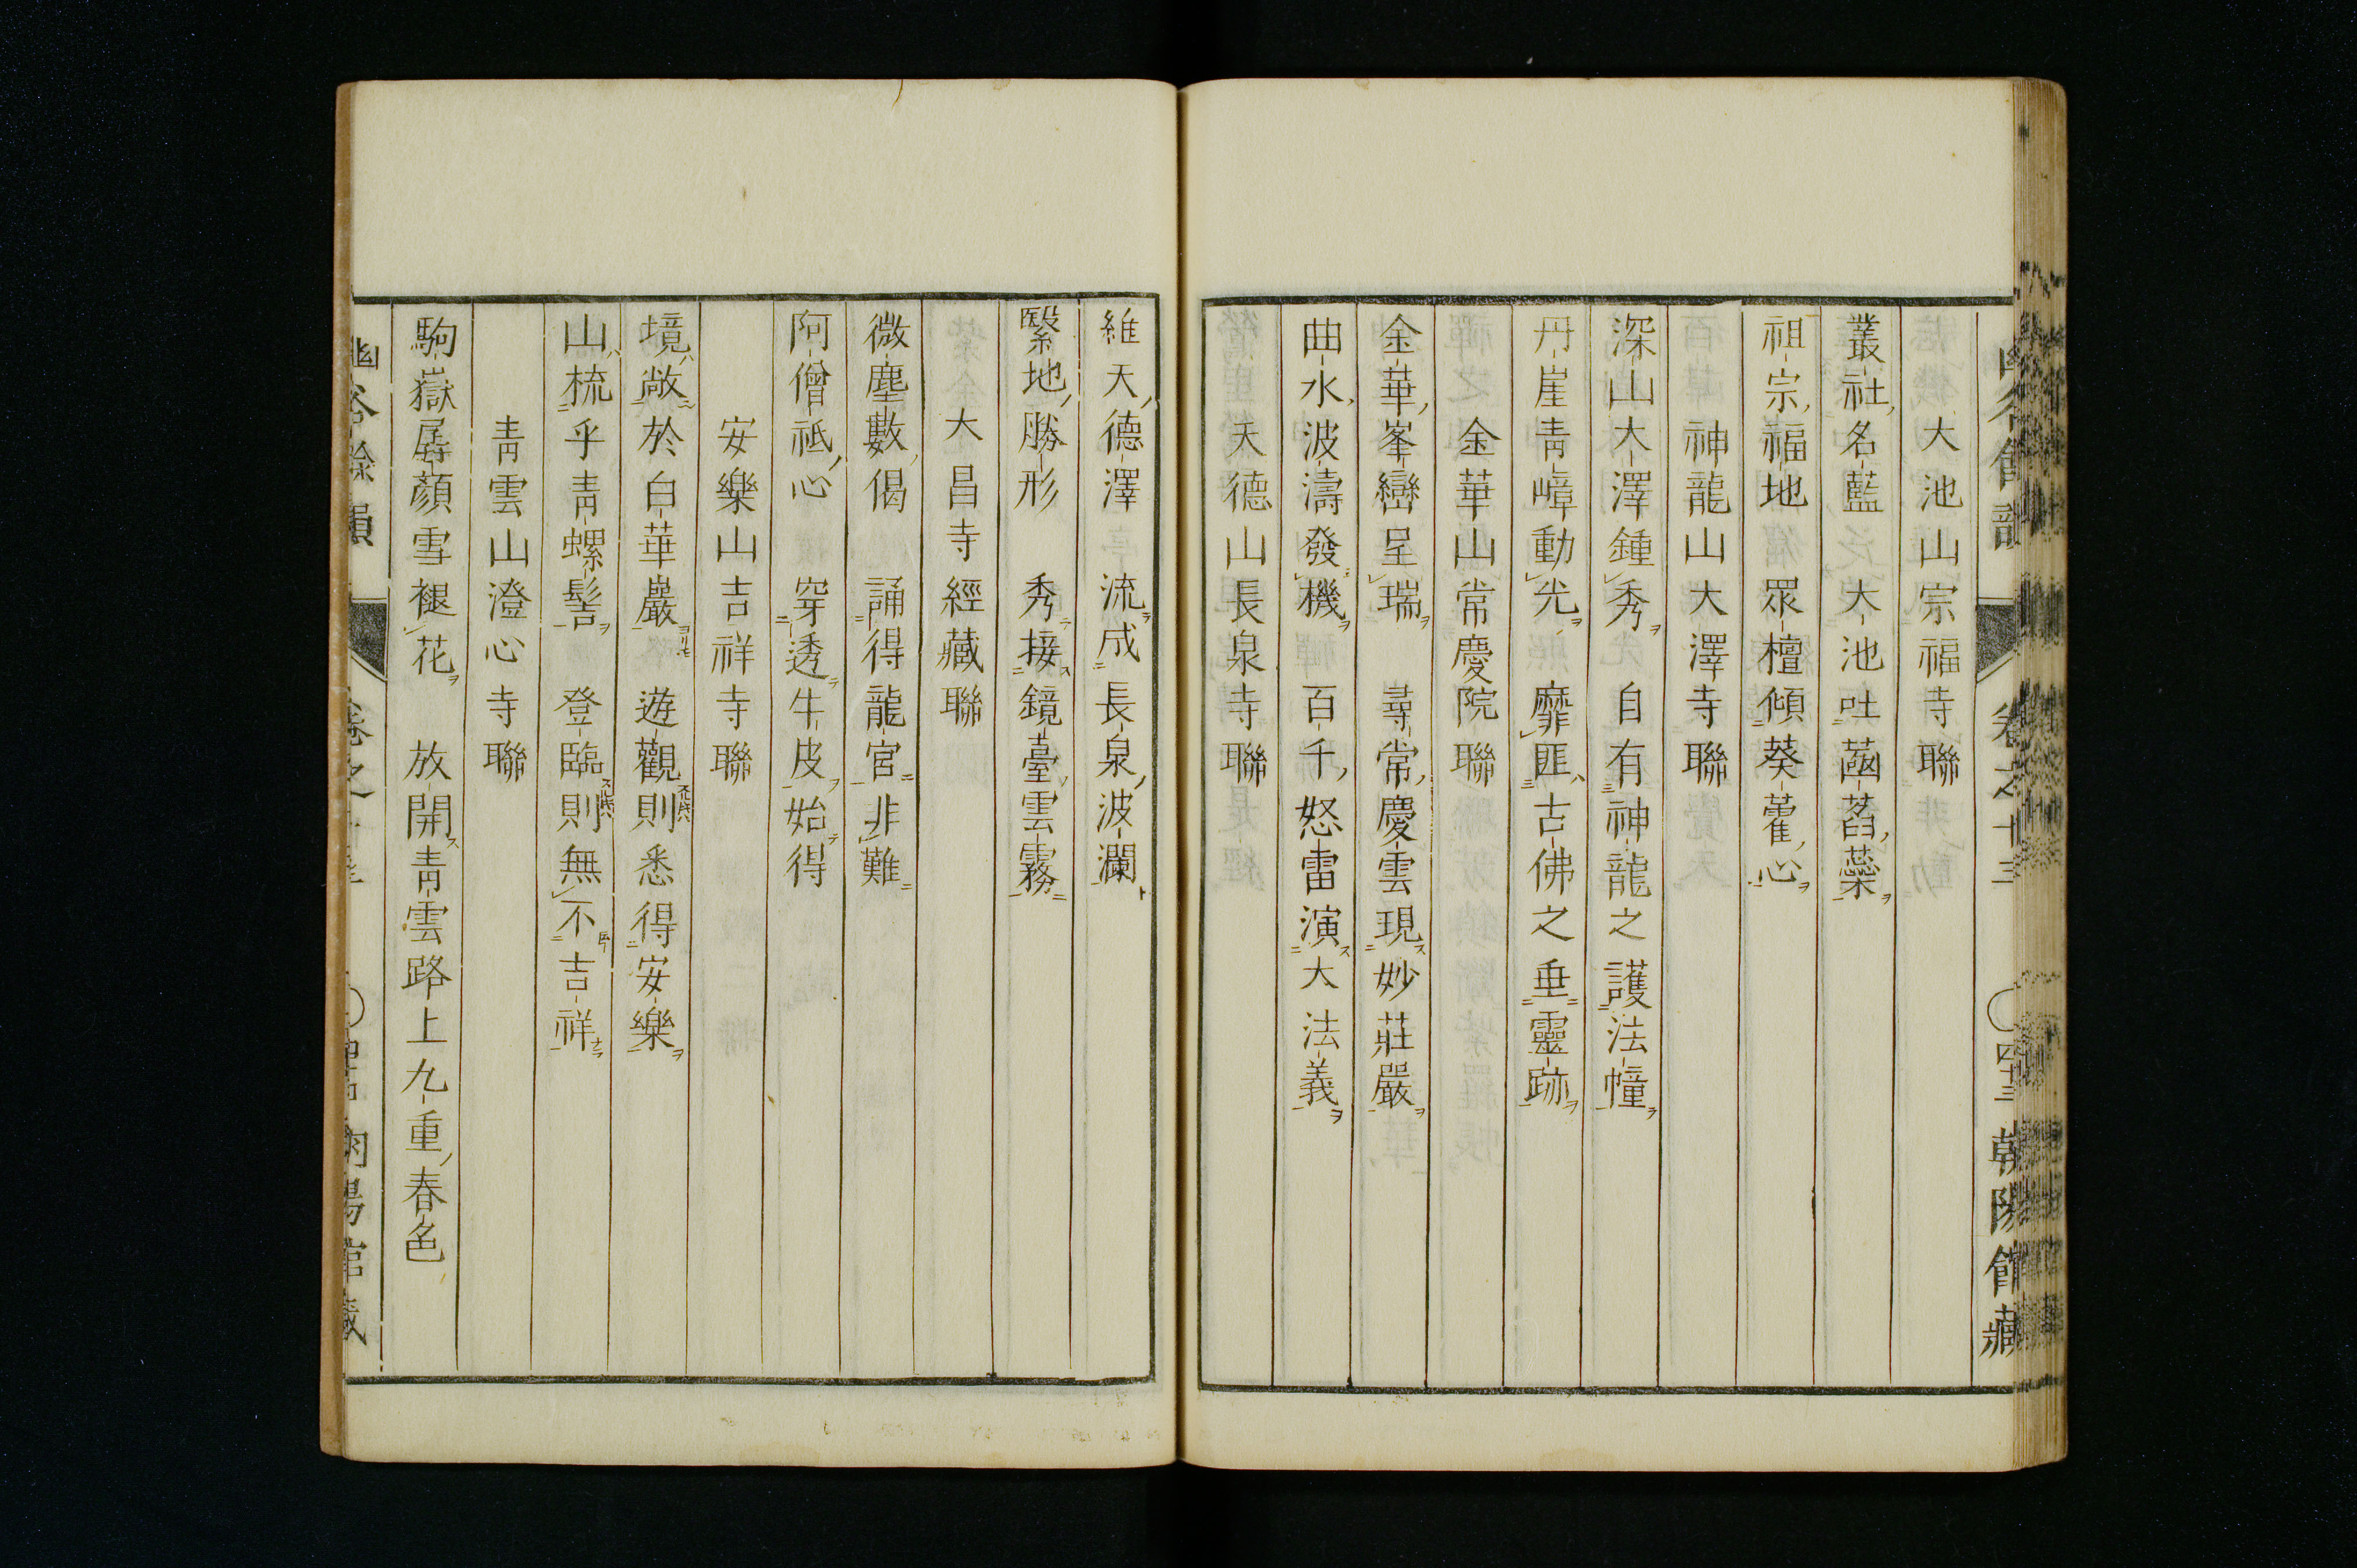 大池山宗福寺聯
叢社名藍 大池吐菡萏蘂
祖宗福地 眾檀傾葵藿心
神龍山大澤寺聯
深山大澤鍾秀 自有神龍之護法幢
丹崖靑嶂動光 靡匪古佛之垂靈跡
金華山常慶院聯
金華峯巒呈瑞 尋常慶雲現妙莊嚴
曲水波濤發機 百千怒雷演大法義
天德山長泉寺聯
維天德澤 流成長泉波瀾
緊地勝形 秀接鏡臺雲霧
大昌寺經藏聯
微塵數偈 誦得龍宮非難
阿僧祗心 穿透牛皮始得
安樂山吉祥寺聯
境敞於白華巖 遊觀則悉得安樂
山梳乎靑螺髻 登臨則無不吉祥
靑雲山澄心寺聯
駒嶽孱顏雪褪花 放開靑雲路上九重春色
卷之十三 四十三 朝陽館藏